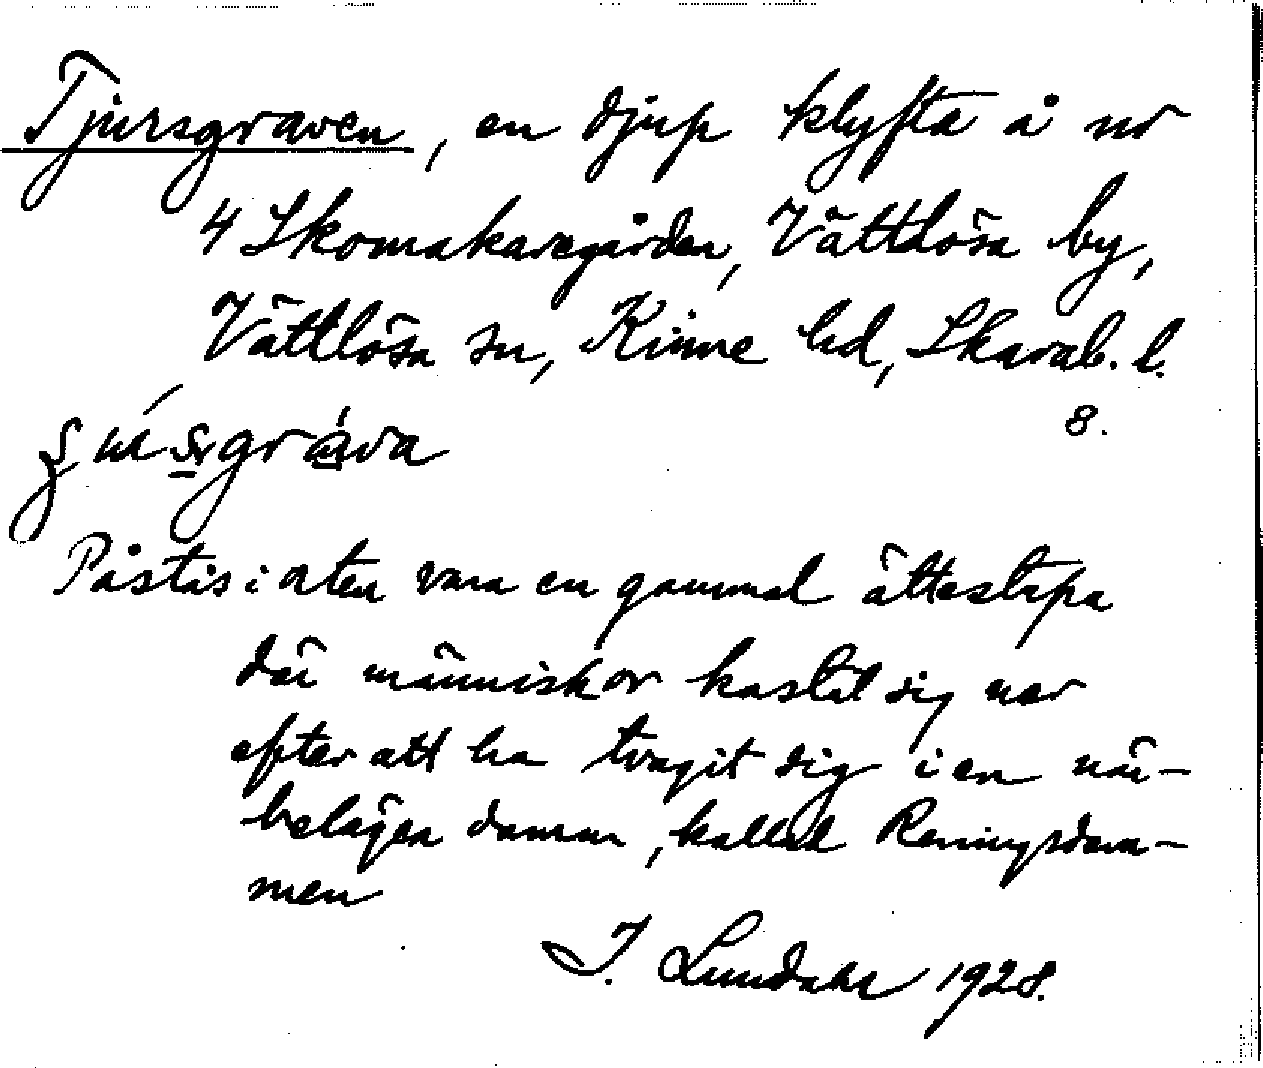 Tjursgraven, en djup klyfta å nr
4 Skomakaregården, Vättlösa by,
Vättlösa sn, Kinne hd, Skarab. l.
8.
Påstås i orten vara en gammal ättestupa
där människor kastat sig ner
efter att ha tvagit sig i en när-
belägen damm, kallad Reningsdam-
men
I. Lundahl 1928.